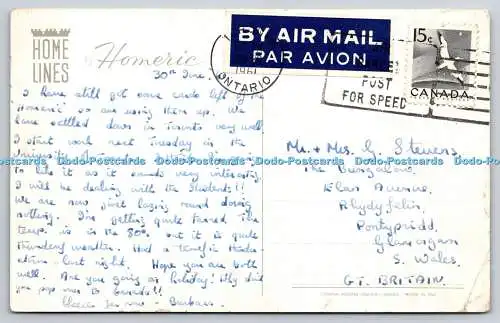 HOME
LINES
Homeric
BY AIR MAIL
PAR AVION
1961
ONTARIO
POST
FOR SPEED
15c
CANADA
30th June.
I have still got some cards left of the
"Homeric" so am using them up. We
have settled down in Toronto very well.
I start work next Tuesday in the
University
to like it as it sounds very interesting.
I will be dealing with the students!!
We are now just lazing round doing
nothing. I'm getting quite tanned. The
temp. is in the 80's. but it is quite
thundery weather. Had a terrific thunder
storm last night. Hope you are both
well. Are you going on holiday? Why don't
you pop over to Canada!!
Cheerio for now - Barbara.
Mr. + Mrs. G. Stevens,
The Bungalow,
Elan Avenue,
Rhydyfelin
Pontypridd
Glamorgan
S. Wales.
GT. BRITAIN.
www.Postcard-Downloads.com